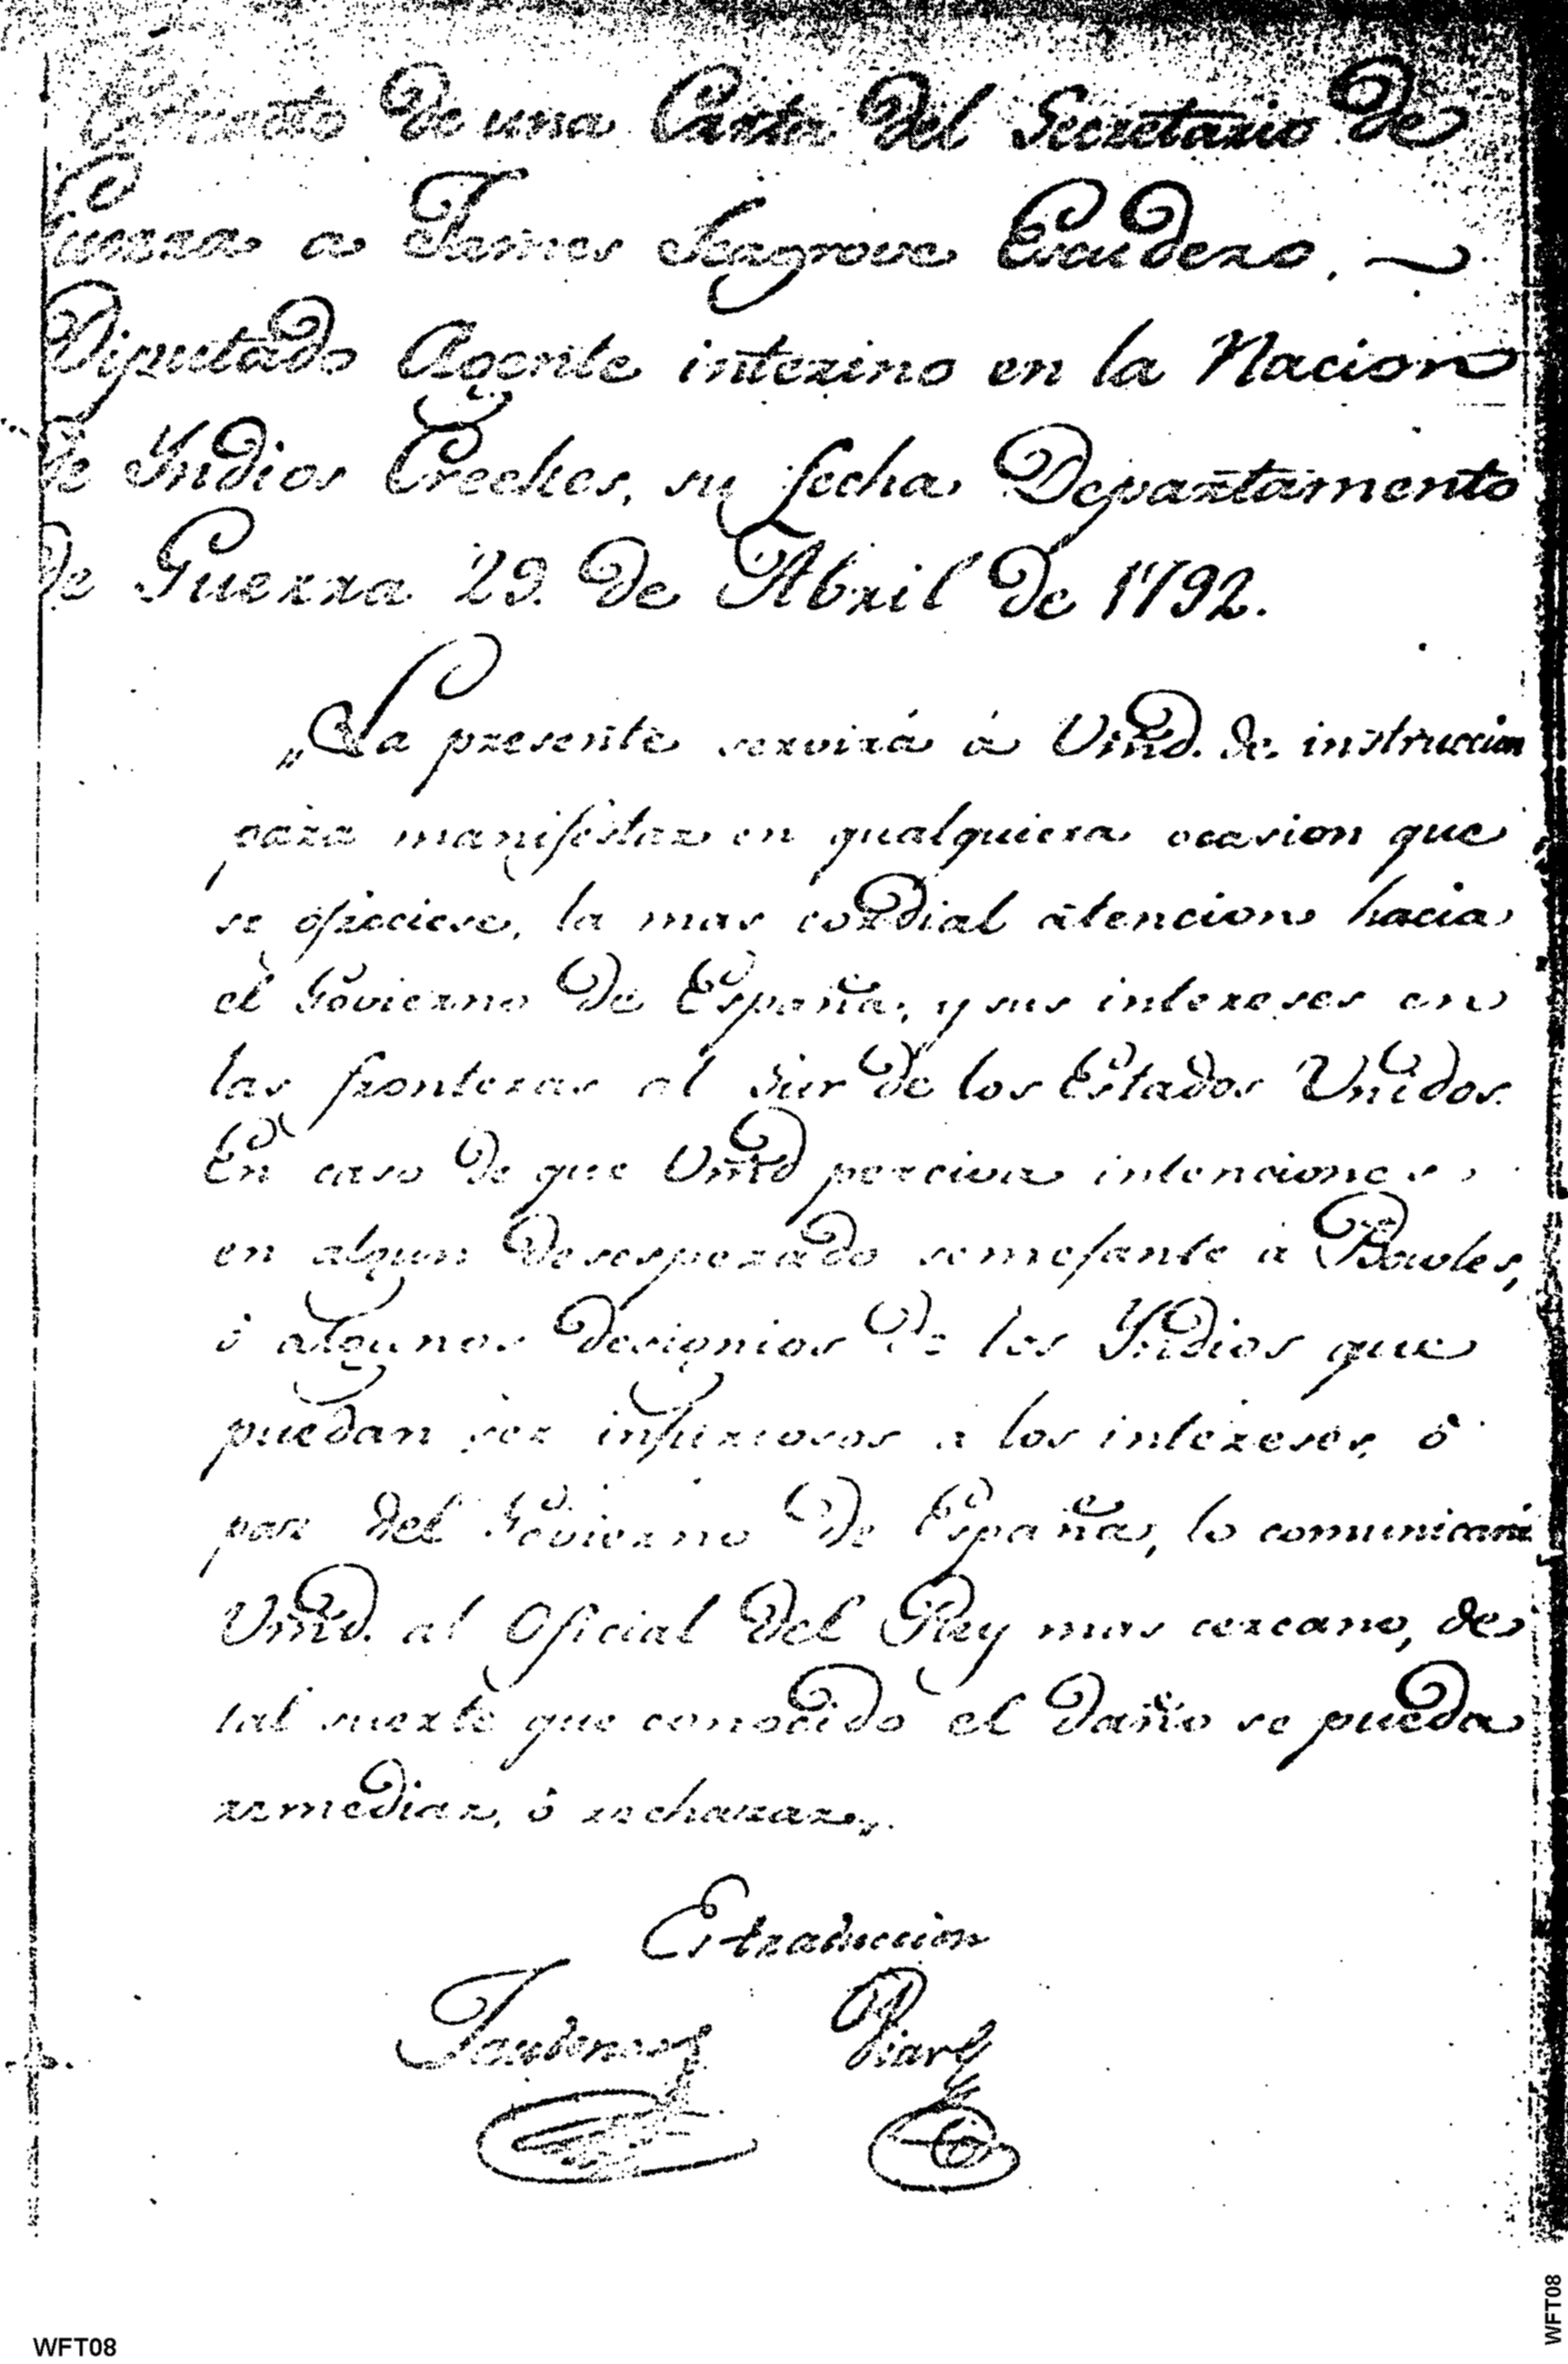 Extracto de una Carta del Secretario de
Guerra a James Seagrove Escudero.
Diputado Agente interino en la Nacion
de Yndios Creekes, su fecha Departamento
de Guerra 29. de Abril de 1792.
„La presente servirá á Vmd. de instruccion
para manifestar en qualquiera ocasion que
se ofreciese, la mas cordial atencion hacia
el Govierno de España, y sus intereses en
las fronteras al Sur de los Estados Unidos.
En caso de que Vmd perciva intenciones
en algun desesperado semejante á Bowles,
ó algunos designios de los Yndios que
puedan ser injuriosos a los intereses, ó
paz del Govierno de España, lo comunicará
Vmd. al Oficial del Rey mas cercano, de
tal suerte que conocido el daño se pueda
remediar, ó rechazar„.
Es traduccion
WFT08
WFT08